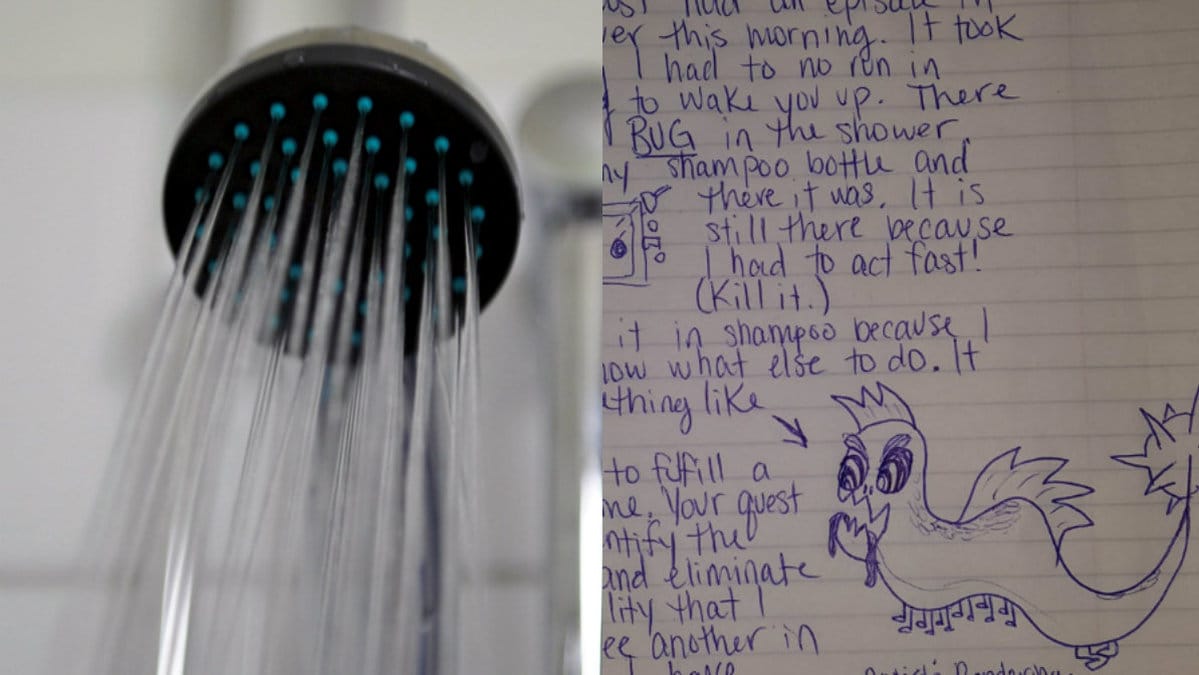 this morning. It took
I had to no run in
to wake you up. There
BUG in the shower.
shampoo bottle and
there it was. It is
still there because
I had to act fast!
(Kill it.)
it in shampoo because I
what else to do. It
like
to fulfill a
Your quest
the
and eliminate
that I
another in